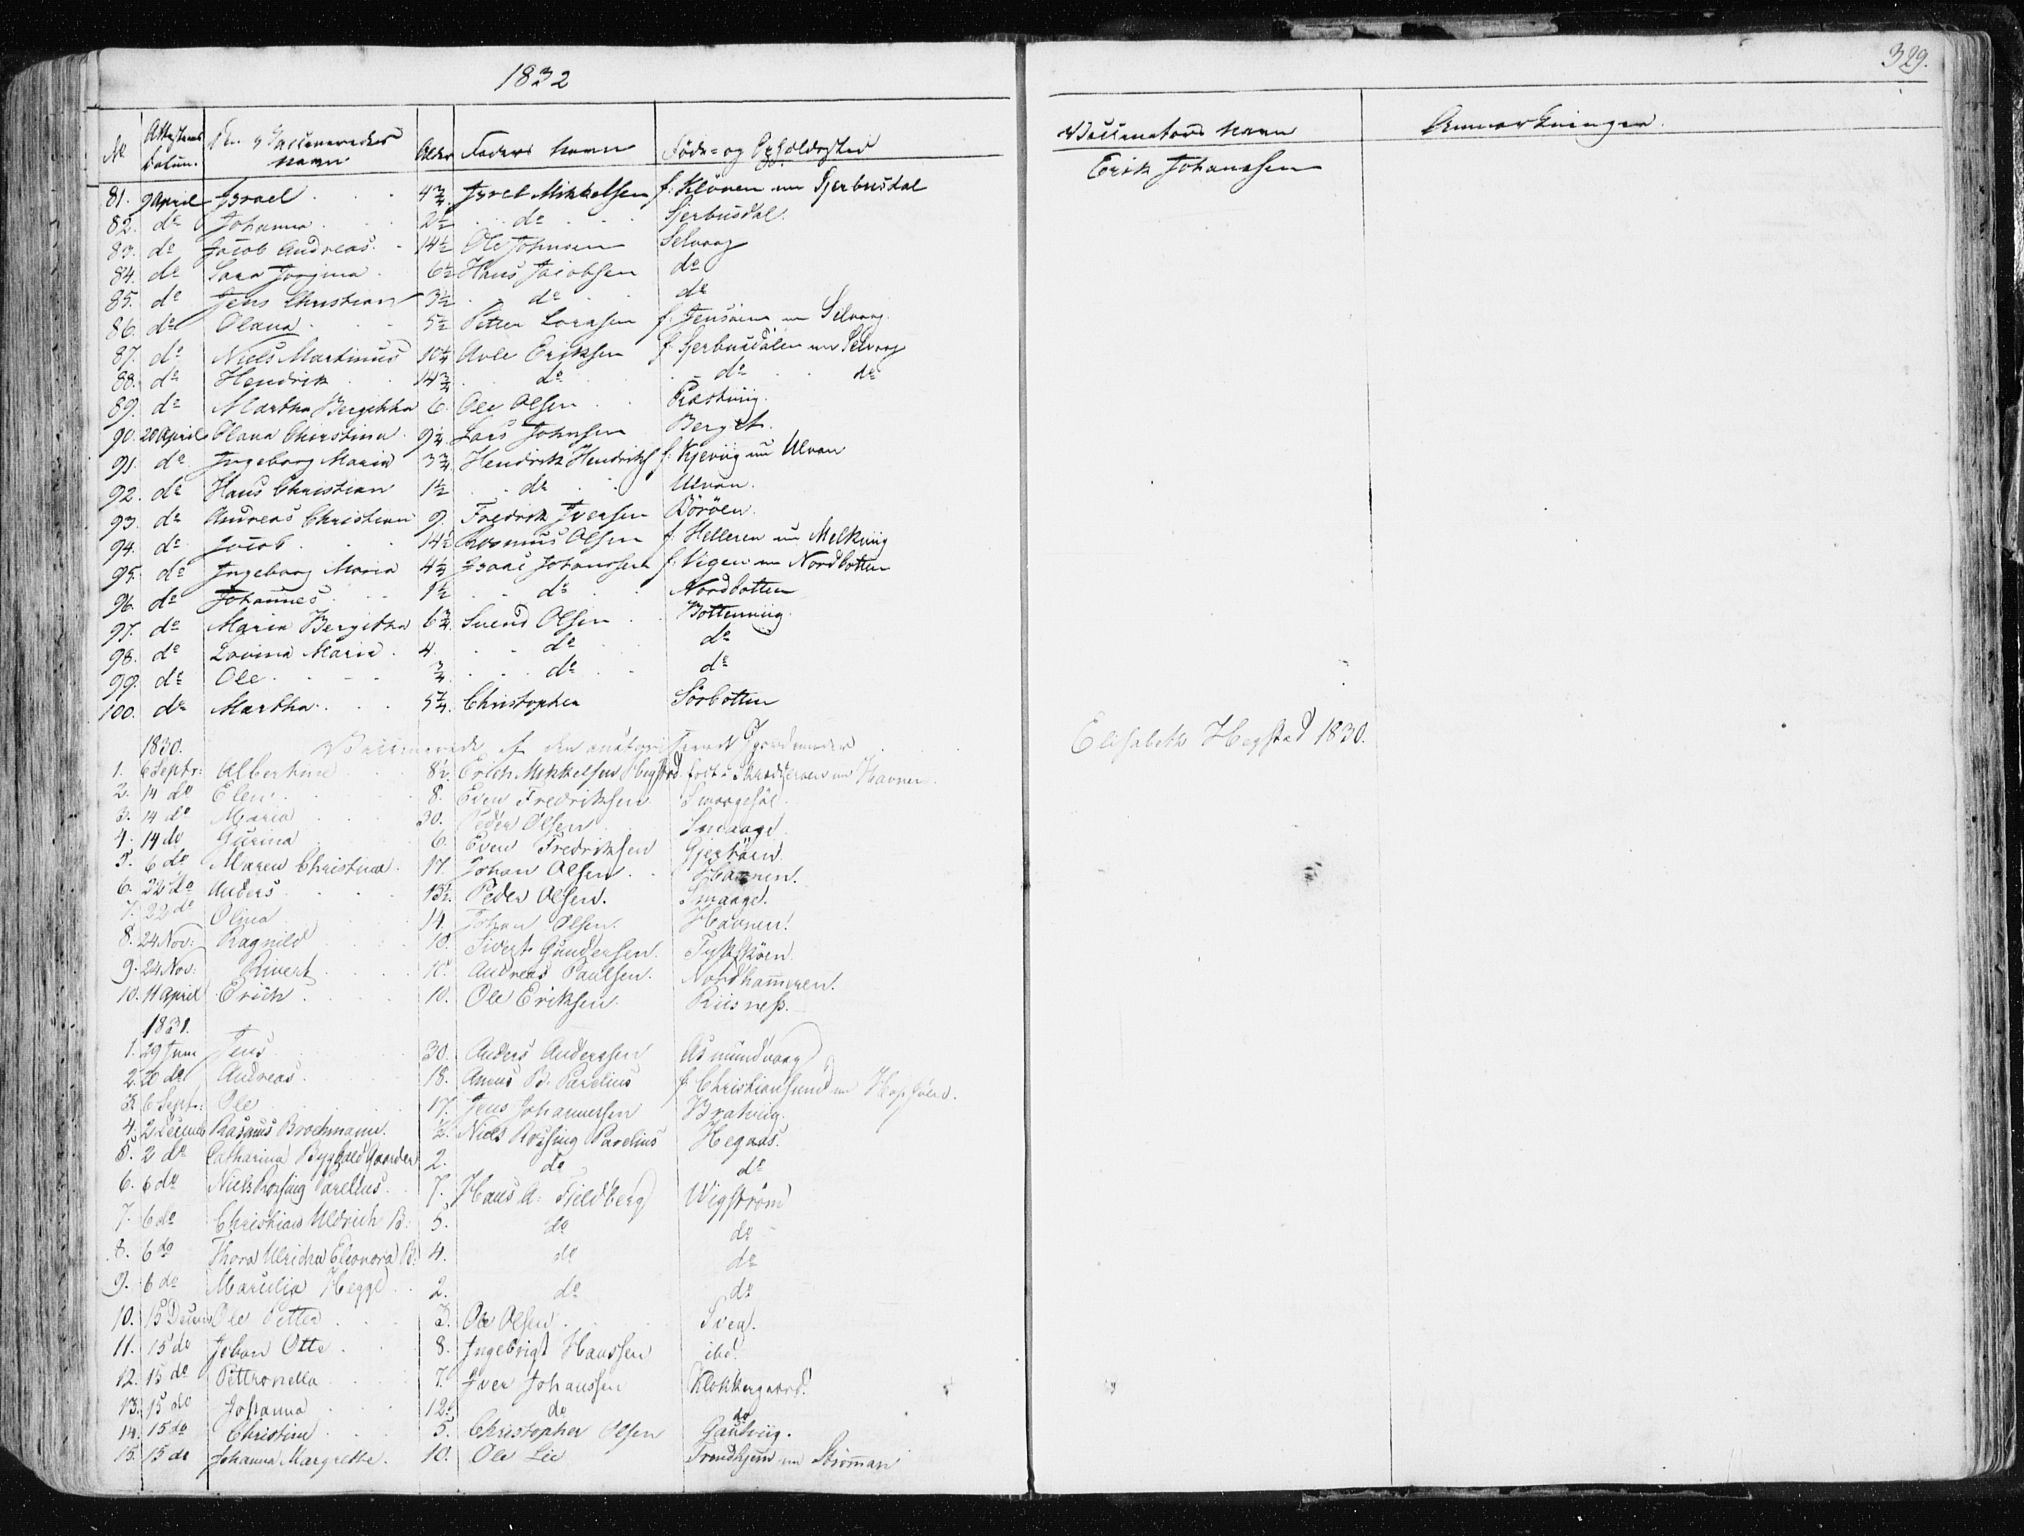 1832
329.
No Attestens Datum. De Vaccineredes Navn Alder Faders Navn Føde- og Opholdssted Vaccinateurs Navn Anmærkninger.
81. 9 April Israel 4 3/4 Israel Mikkelsen f. Kløven nu Gjerbusdal Erik Johanssen
82. do Johanna 2 1/2 do Gjerbusdal.
83. do Jacob Andreas. 14 1/2 Ole Johnsen Selvaag
84. do Sara Jorgina. 6 1/2 Hans Jacobsen do
85. do Jens Christian 3 1/2 do do
86. do Olana 5 1/2 Petter Larssen f. nu Selvaag.
87. do Niels Martinus 10 1/4 Avle Eriksen f. Gjerbusdalen nu Selvaag
88. do Hendrik 14 3/4 do do do
89. do Martha Bergithha 6. Ole Olsen Præstviig.
90. 20 April Olava Christina. 9 1/4 Lars Johnsen Berget.
91. do Ingeborg Maria 3 3/4 Hendrik Hendriks f. Kjeviig nu Ulvan
92. do Hans Christian 1 1/2 do Ulvan.
93. do Andreas Christian 9. Fredrik Iversen Børøen.
94. do Jacob 14 1/2 Rasmus Olsen f. Helleren nu Melkviig
95. do Ingeborg Maria 4 1/2 Isaac Johanssen f. Vigen nu Nordbotten
96. do Johannes 1 1/2 do Nordbotten
97. do Maria Bergitha 6 3/4 Svend Olsen Bottenviig.
98. do Lovina Maria. 4. do do
99. do Ole 3/4 do do
100. do Martha. 5 1/4 Christopher Sørbotten
1830. Vaccinerede af den Gjordemoder Elisabeth Hegstad 1830.
1. 6 Septr: Albertine 8 1/2. Erich Mikkelsen Hegstad født i nu Havnen.
2. 14 do Elen 8. Even Fredriksen Smaagesøe.
3. 14 do Maria 30. Peder Olsen Smaage.
4. 14 do Gurina 6. Even Fredriksen Gjerøen.
5. 6 do Maren Christina. 17. Johan Olsen. Havnen.
6. 22 do Anders 13 1/2. Peder Olsen. Smaage.
7. 22 do Olina 14. Johan Olsen. Havnen.
8. 24 Nov: Ragnild 10. Sivert Gundersen.
9. 24 Nov: Sivert 10. Andreas Paulsen. Nordhammeren.
10. 11 April Erich. 10. Ole Eriksen. Riisness.
1831.
1. 29 Juni Jens 30. Anders Andersen Asmundvaag
2. 20 do Andreas. 18. B. Parelius f. Christiansund nu Hopsøen.
3. 6 Sept: Ole 17. Jens Johannessen Bratviig.
4. 2 Decemb Rasmus Brochmann. 1/2. Niels Rossing Parelius Hegaas.
5. 2 do Catharina Gaarder 2. do do
6. 6 do Niels Rossing Parelius. 7. Hans A: Fjeldberg Wigstrøm
7. 6 do Christian Uldrich B: 5. do do
8. 6 do Thora Ulricha Eleonora B: 4. do do
9. 6 do Marcilia Hegge 2. do do
10. 15 Decem Ole Petter 3. Ole Olsen. Sven.
11. 15 do Johan Otto 8. Ingebrigt Hanssen ibd.
12. 15 do Pettronella 7. Iver Johanssen Klokkergaard.
13. 15 do Johanna 12. do do
14. 15 do Christine 5. Christopher Olsen Gautviig.
15. 15 do Johanna Margrethe. 10. Ole Lie Trondhjem nu Strömman